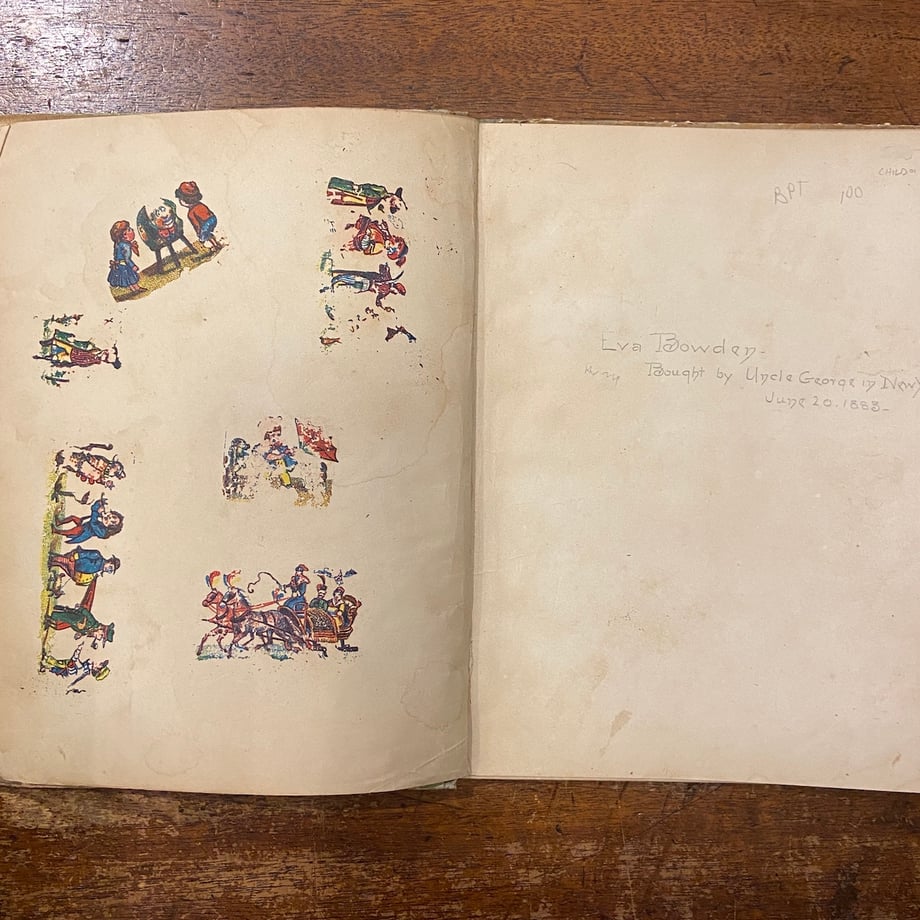 CHILD
BPT 100
Eva Bowden-
Bought by Uncle George in New Y
June 20. 1883-